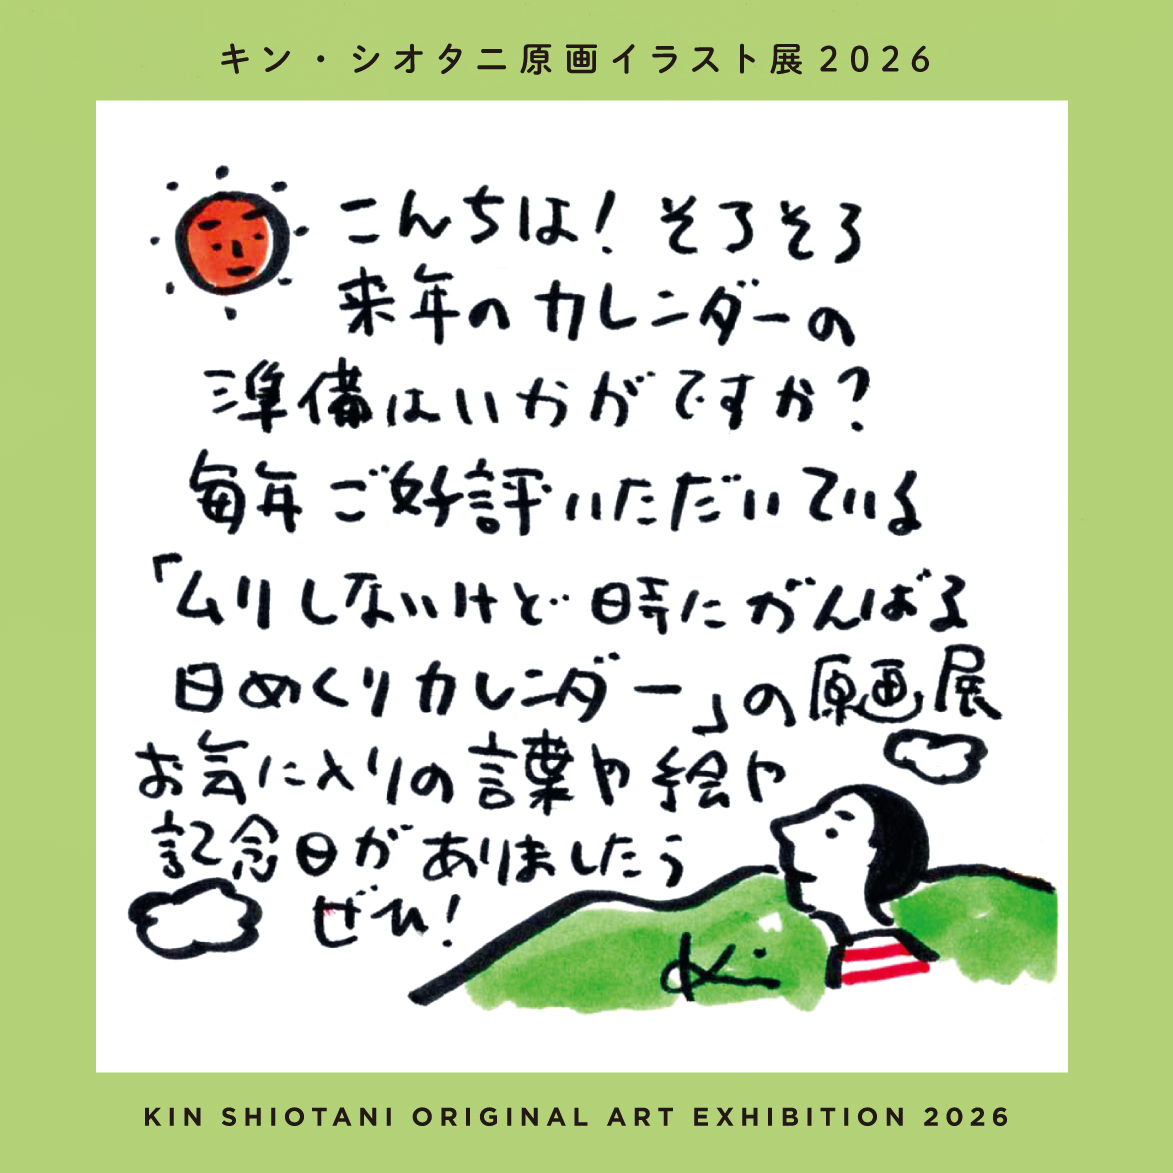 キン・シオタニ原画イラスト展2026
こんちは！そろそろ
来年のカレンダーの
準備はいかがですか？
毎年ご好評いただいている
「ムリしないけど時にがんばる
日めくりカレンダー」の原画展
お気に入りの言葉や絵や
記念日がありましたら
ぜひ！
KIN SHIOTANI ORIGINAL ART EXHIBITION 2026